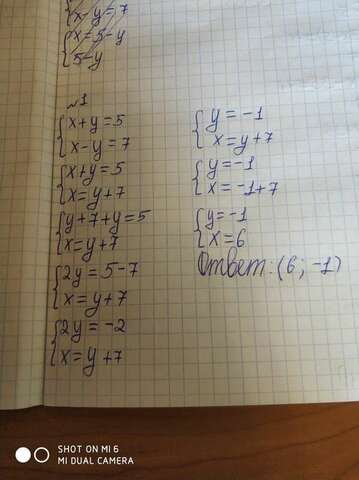 x-y=7
x=5-y
5-y
№1
x+y=5
x-y=7
x+y=5
x=y+7
y+7+y=5
x=y+7
2y=5-7
x=y+7
2y=-2
x=y+7
y=-1
x=y+7
y=-1
x=-1+7
y=-1
x=6
Ответ: (6; -1)
SHOT ON MI 6
MI DUAL CAMERA